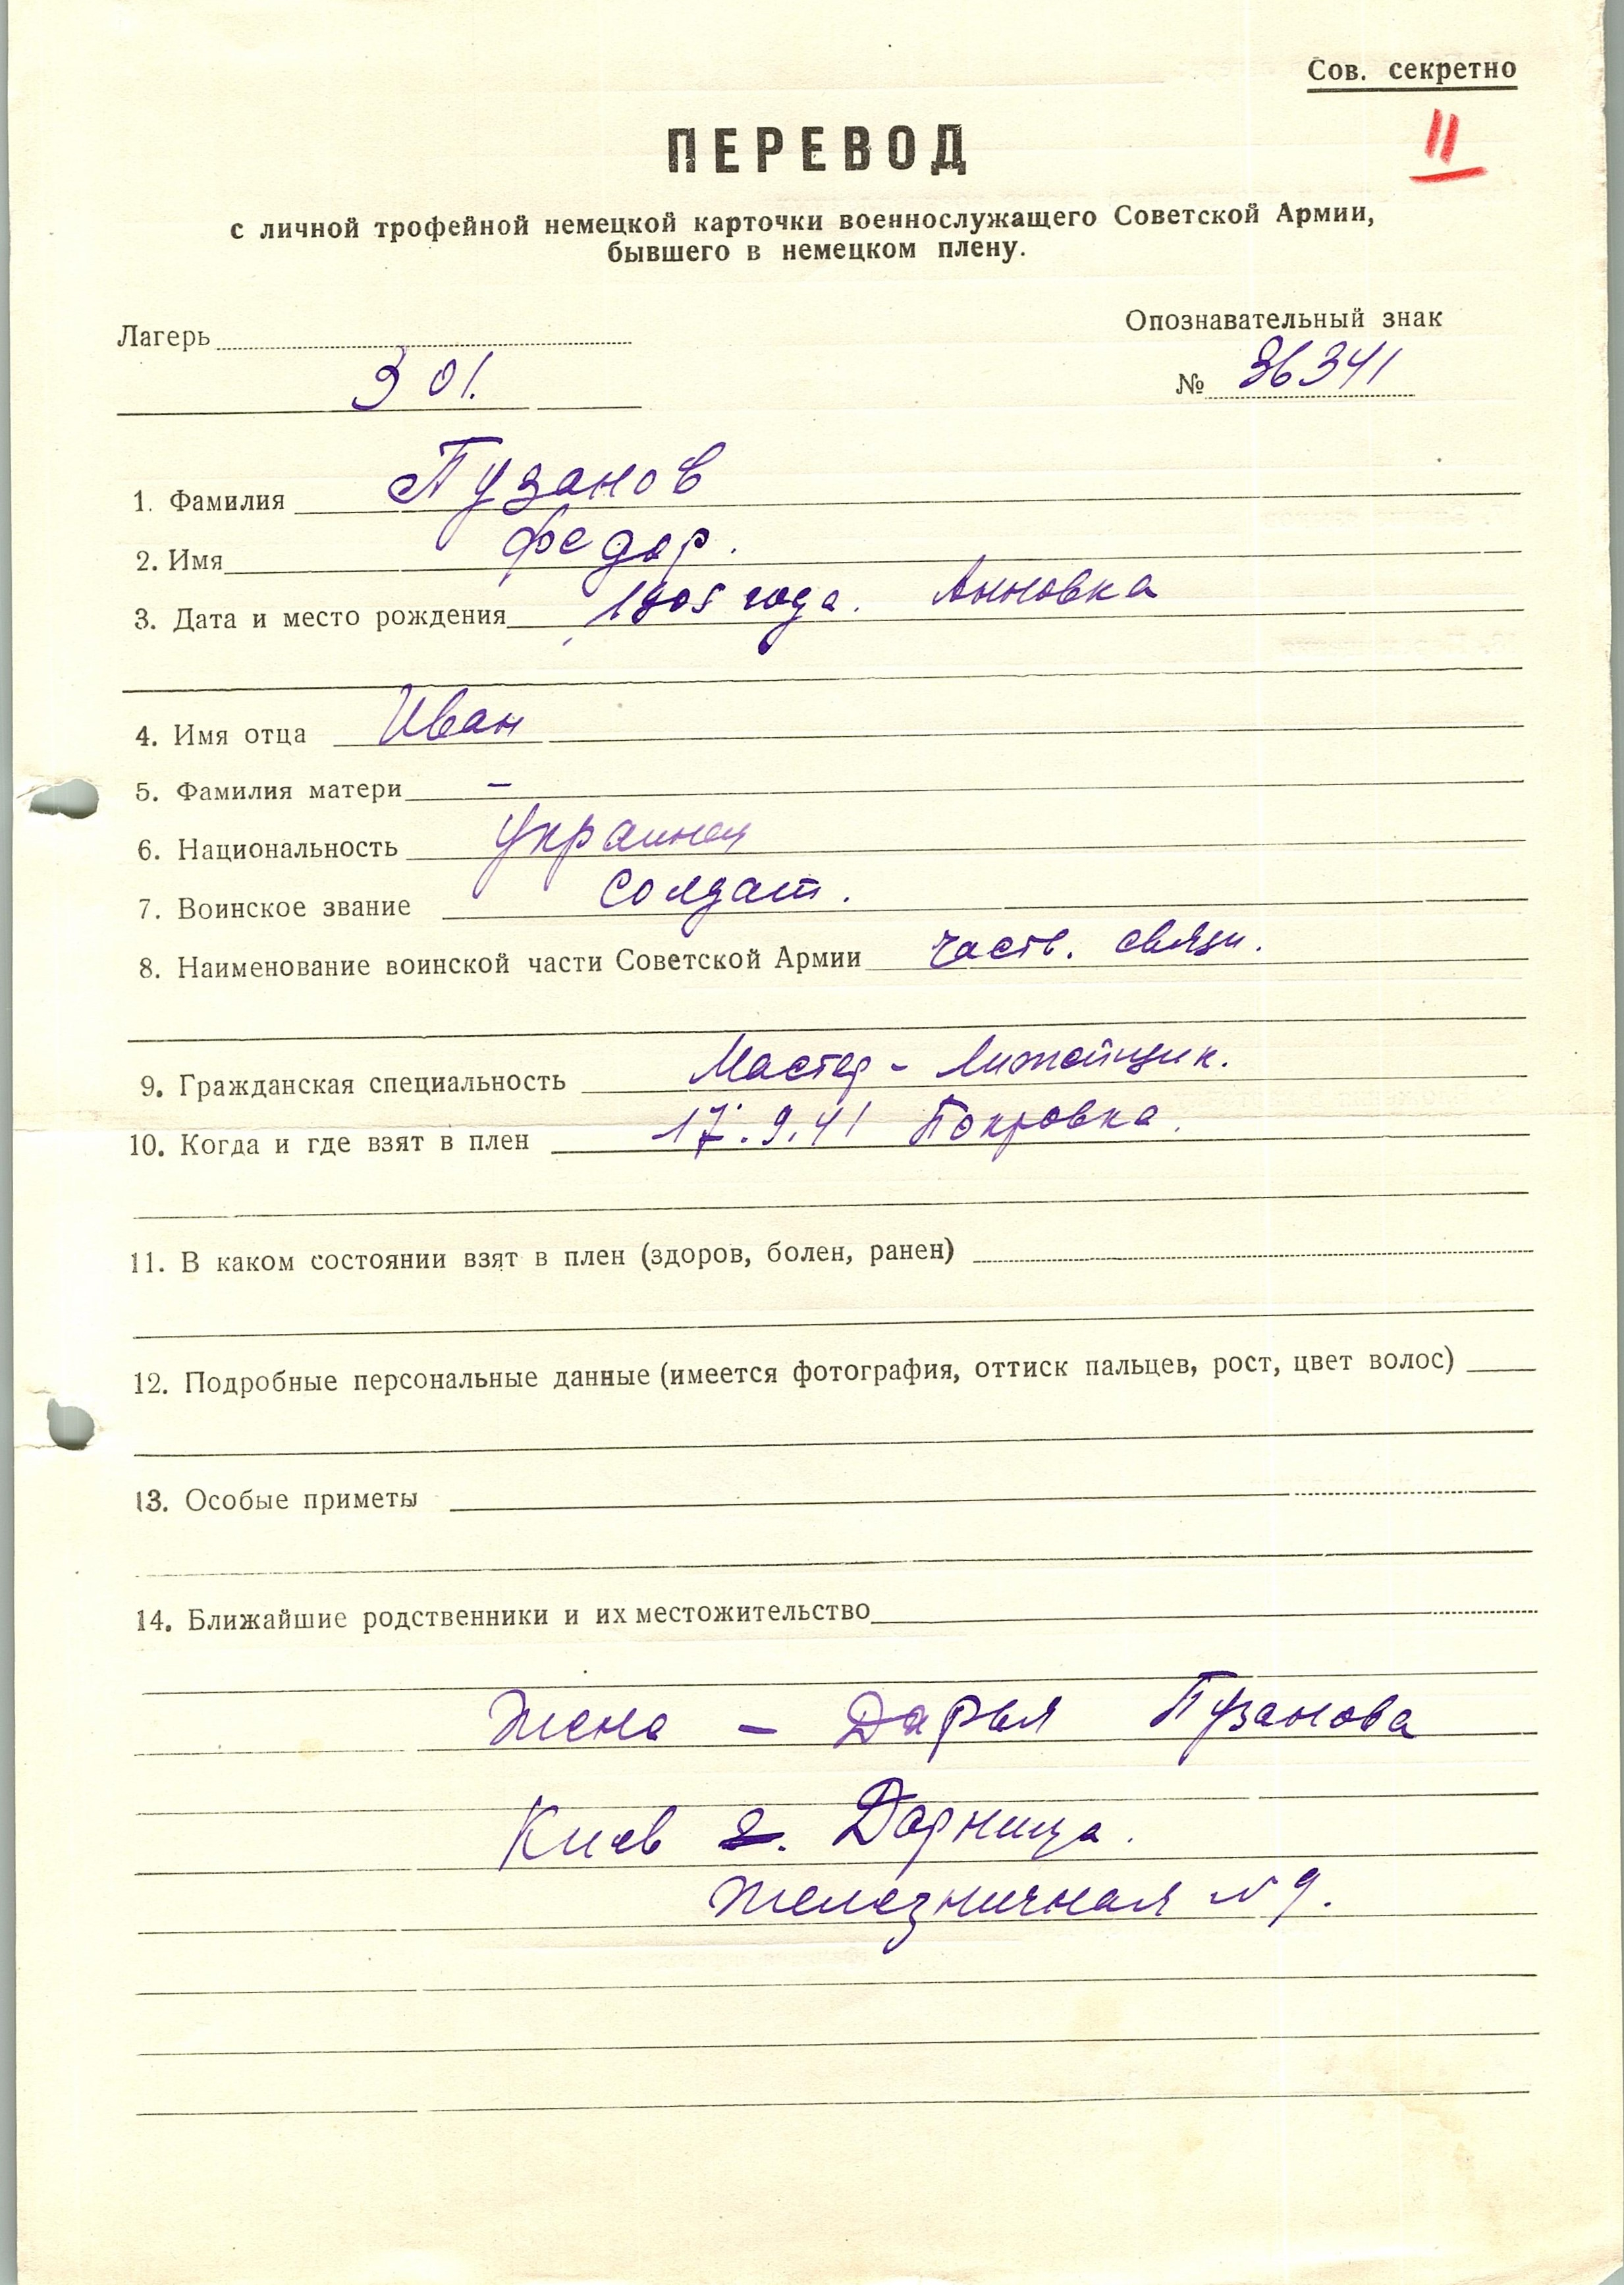 Сов. секретно
11
ПЕРЕВОД
с личной трофейной немецкой карточки военнослужащего Советской Армии,
бывшего в немецком плену.
Лагерь
301.
Опознавательный знак
№ 36341
1. Фамилия Пузанов
2. Имя Федор.
3. Дата и место рождения 1905 года. Анновка
4. Имя отца Иван
5. Фамилия матери –
6. Национальность украинец
7. Воинское звание Солдат.
8. Наименование воинской части Советской Армии часть. связи.
9. Гражданская специальность Мастер - Литейщик.
10. Когда и где взят в плен 17.9.41 Покровка.
11. В каком состоянии взят в плен (здоров, болен, ранен)
12. Подробные персональные данные (имеется фотография, оттиск пальцев, рост, цвет волос)
13. Особые приметы
14. Ближайшие родственники и их местожительство
Жена – Дарья Пузанова
Киев Дарница.
Железничная N 9.